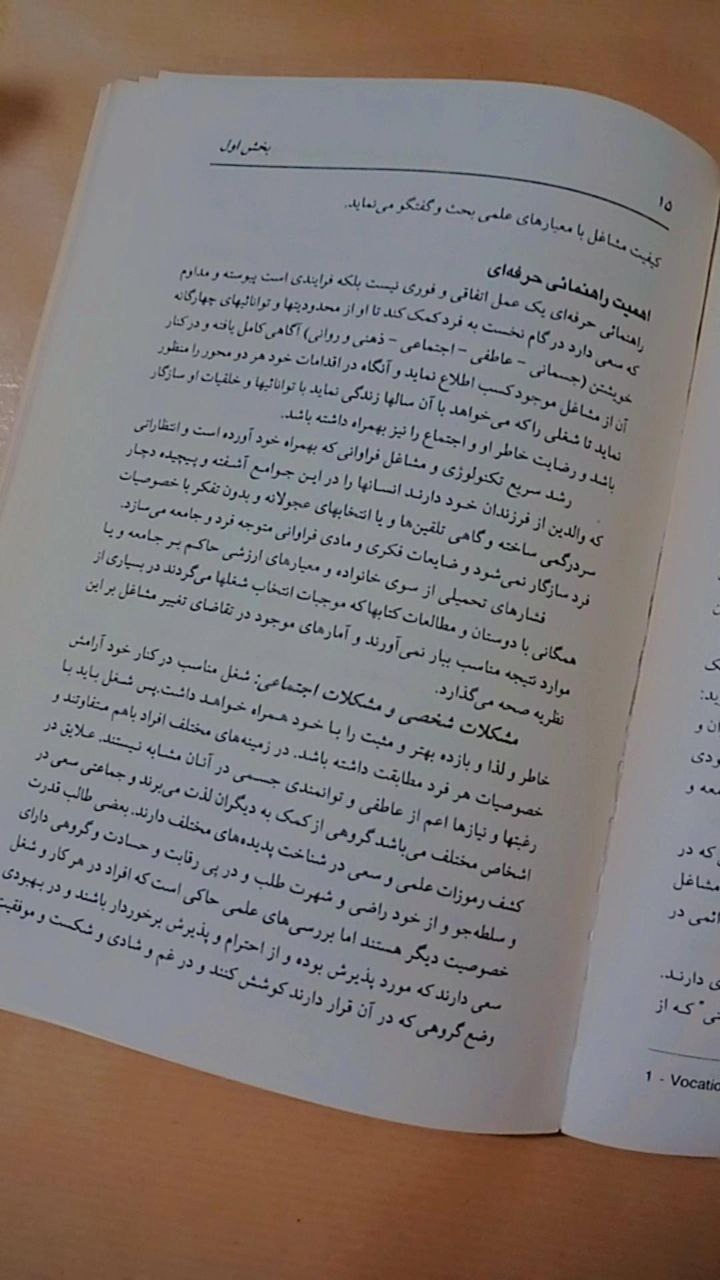 ۱۵
بخش اول
کیفیت مشاغل با معیارهای علمی بحث و گفتگو می‌نماید.
اهمیت راهنمائی حرفه‌ای
راهنمائی حرفه‌ای یک عمل اتفاقی و فوری نیست بلکه فرایندی است پیوسته و مداوم
که سعی دارد در گام نخست به فرد کمک کند تا او از محدودیتها و توانائیهای چهارگانه
خویشتن (جسمانی - عاطفی - اجتماعی - ذهنی و روانی) آگاهی کامل یافته و در کنار
آن از مشاغل موجود کسب اطلاع نماید و آنگاه در اقدامات خود هر دو محور را منظور
نماید تا شغلی را که می‌خواهد با آن سالها زندگی نماید با توانائیها و خلقیات او سازگار
باشد و رضایت خاطر او و اجتماع را نیز بهمراه داشته باشد.
رشد سریع تکنولوژی و مشاغل فراوانی که بهمراه خود آورده است و انتظاراتی
که والدین از فرزندان خود دارند انسانها را در این جوامع آشفته و پیچیده دچار
سردرگمی ساخته و گاهی تلقین‌ها و یا انتخابهای عجولانه و بدون تفکر با خصوصیات
فرد سازگار نمی‌شود و ضایعات فکری و مادی فراوانی متوجه فرد و جامعه می‌سازد.
فشارهای تحمیلی از سوی خانواده و معیارهای ارزشی حاکم بر جامعه و یا
همگانی با دوستان و مطالعات کتابها که موجبات انتخاب شغلها می‌گردند در بسیاری از
موارد نتیجه مناسب ببار نمی‌آورند و آمارهای موجود در تقاضای تغییر مشاغل بر این
نظریه صحه می‌گذارد.
مشکلات شخصی و مشکلات اجتماعی: شغل مناسب در کنار خود آرامش
خاطر و لذا و بازده بهتر و مثبت را با خود همراه خواهد داشت. پس شغل باید با
خصوصیات هر فرد مطابقت داشته باشد. در زمینه‌های مختلف افراد باهم متفاوتند و
رغبتها و نیازها اعم از عاطفی و توانمندی جسمی در آنان مشابه نیستند. علایق در
اشخاص مختلف می‌باشد گروهی از کمک به دیگران لذت می‌برند و جماعتی سعی در
کشف رموزات علمی و سعی در شناخت پدیده‌های مختلف دارند. بعضی طالب قدرت
و سلطه‌جو و از خود راضی و شهرت طلب و در پی رقابت و حسادت و گروهی دارای
خصوصیت دیگر هستند اما بررسی‌های علمی حاکی است که افراد در هر کار و شغل
سعی دارند که مورد پذیرش بوده و از احترام و پذیرش برخوردار باشند و در بهبودی
وضع گروهی که در آن قرار دارند کوشش کنند و در غم و شادی و شکست و موفقیت
که در
مشاغل
دارند.
که از
1 -